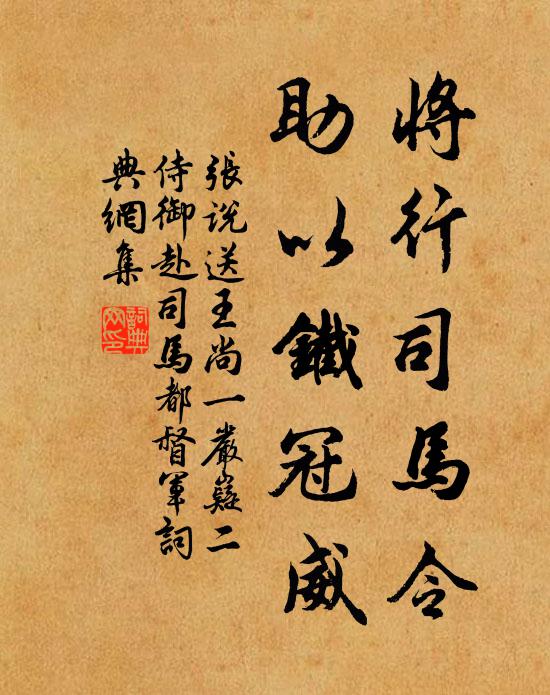 將行司馬令
助以鐵冠威
張說送王尚一嚴嶷二
侍御赴司馬都督軍詞
典網集
詞典網印